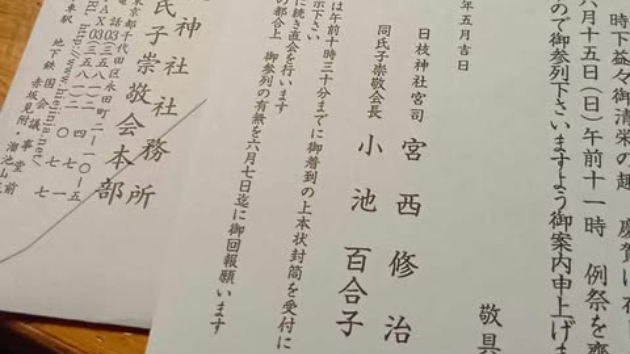 時下益々御清栄の趣　慶賀に
六月十五日（日）午前十一時　例祭を
ので御参列下さいますよう御案内申上げま
敬具
年五月吉日
日枝神社宮司　宮西修治
同氏子崇敬会長　小池百合子
は午前十時三十分までに御着到の上本状封筒を受付に
示下さい
に続き直会を行います
の都合上　御参列の有無を六月七日迄に御回報願います
神社社務所
氏子崇敬会本部
東京都千代田区永田町二ー一〇ー五
電話03（三五八一）二四七一
FAX03（三五八一）二〇七七
URL http://www.hiejinja.net/
地下鉄　国会議事堂前
赤坂見附・溜池山王